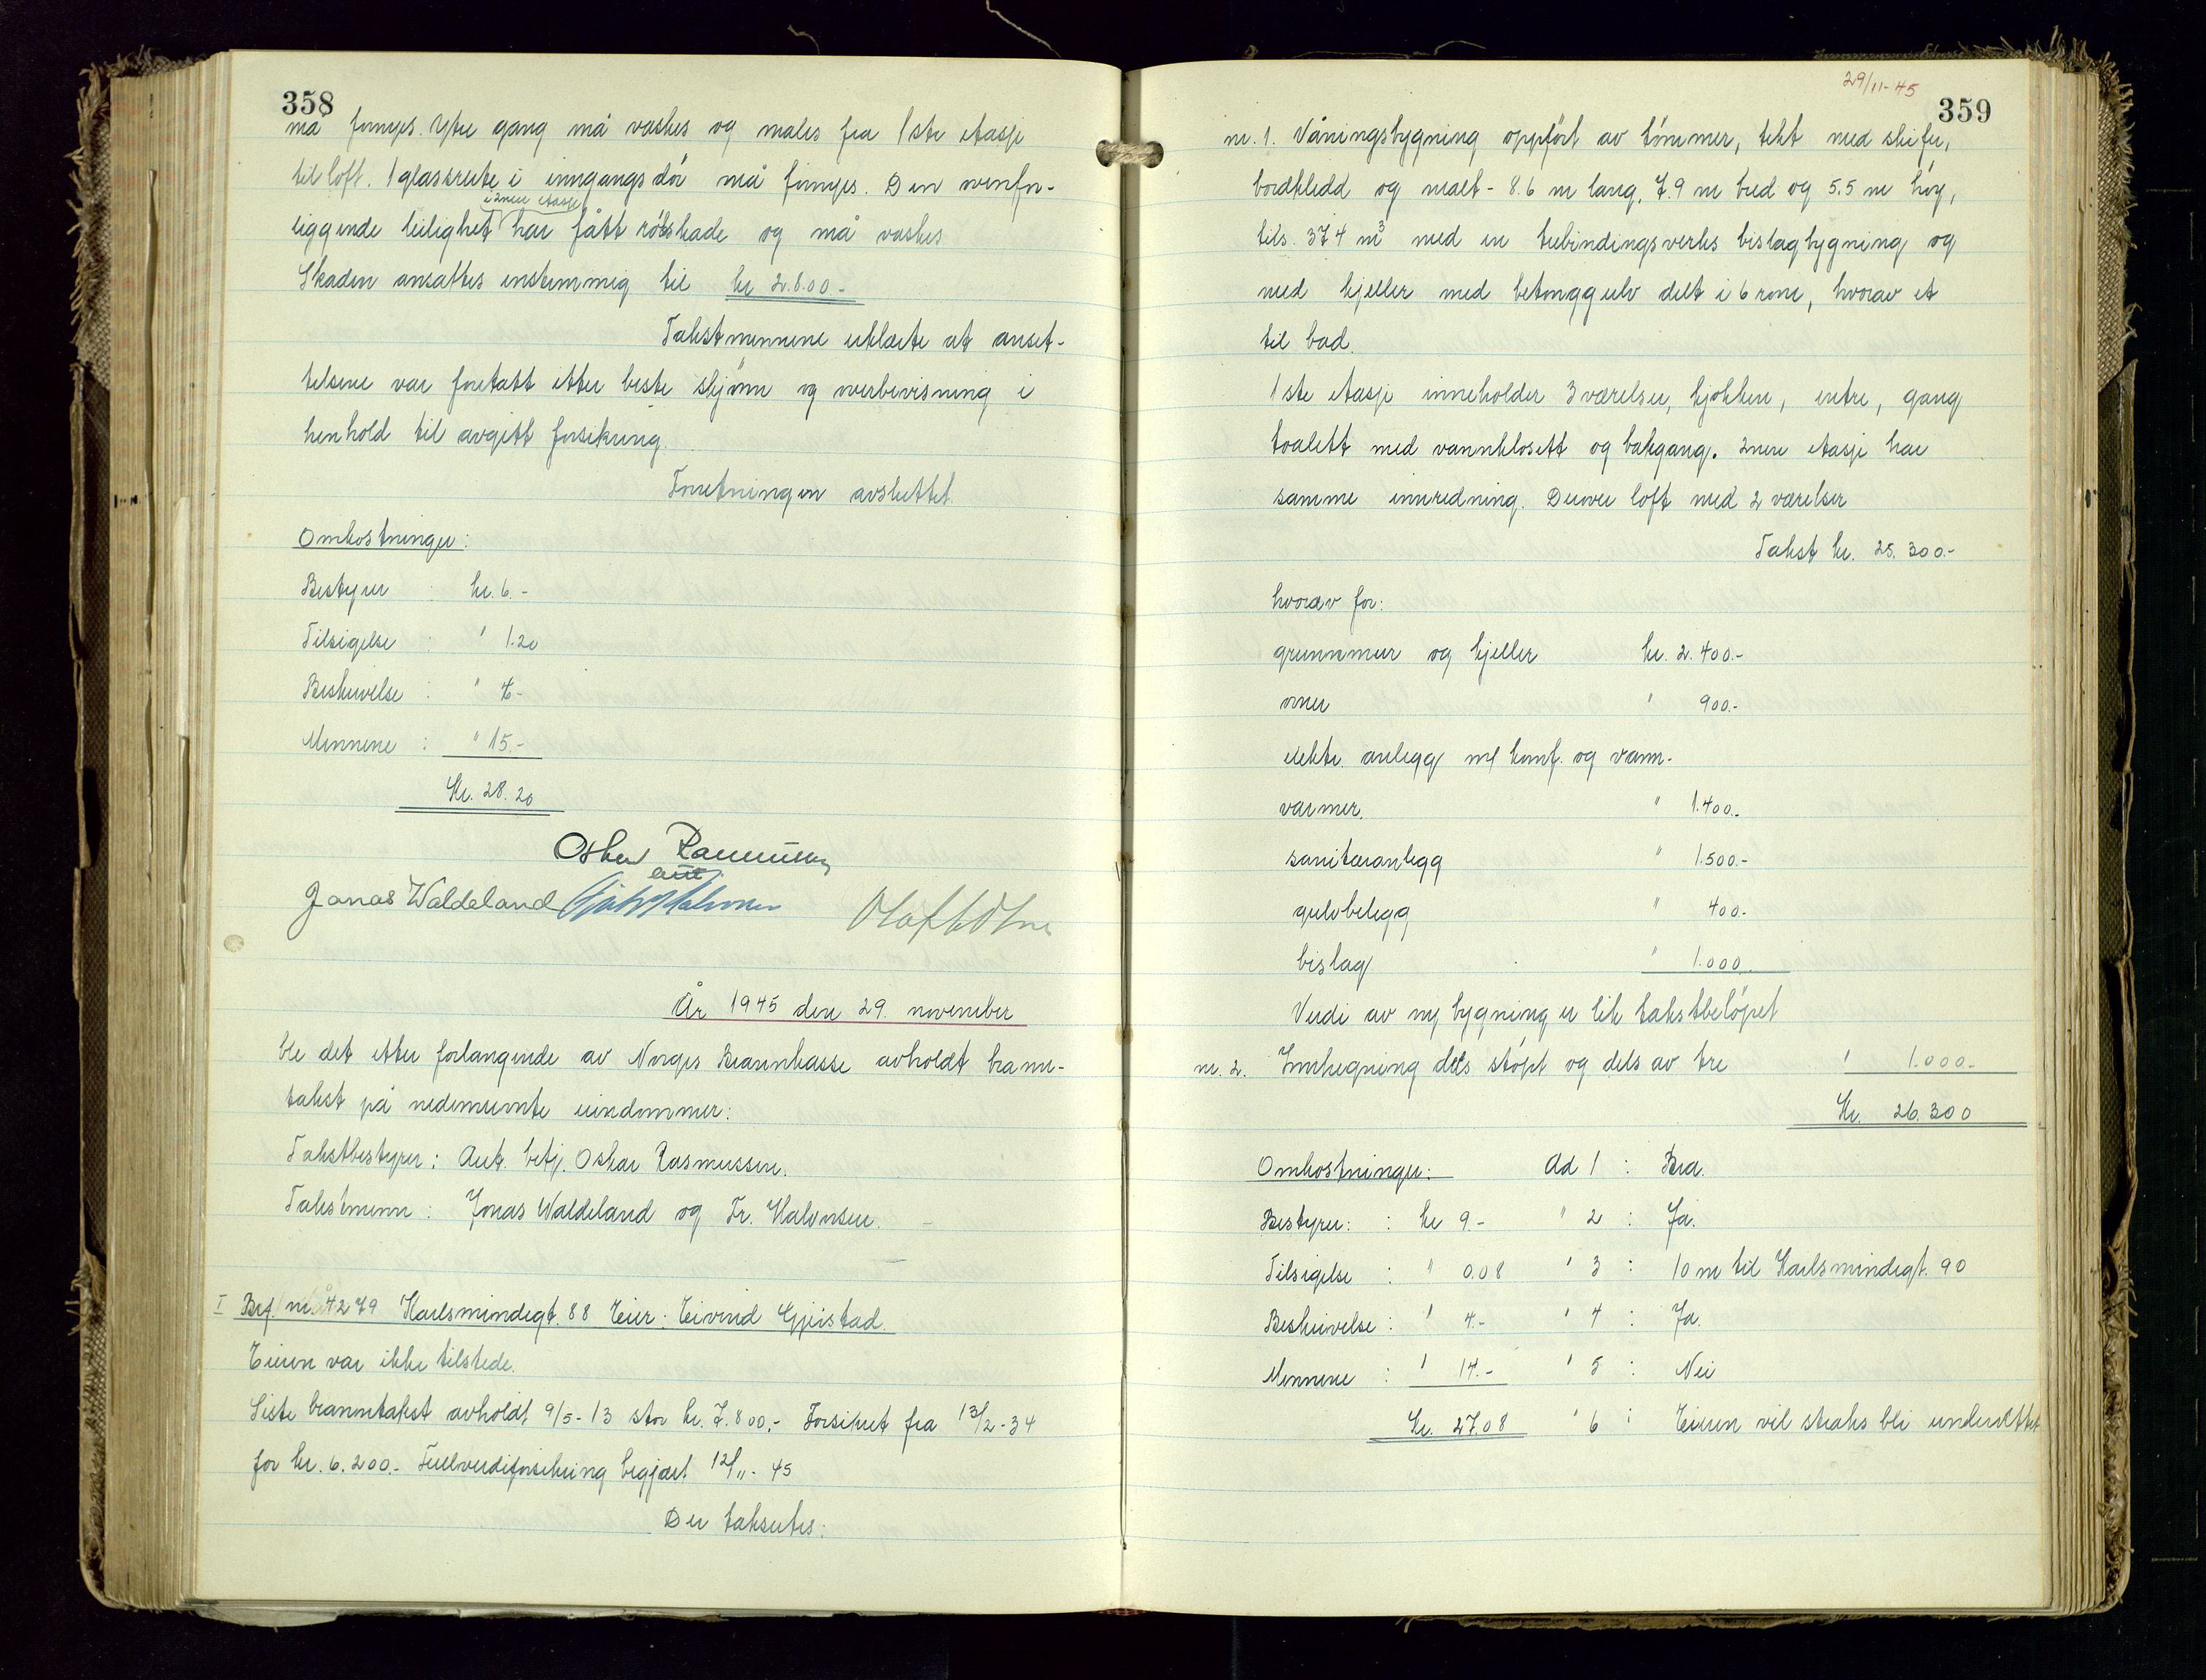 358
må fornyes. Ytre gang må vaskes og males fra 1ste etasje
til loft. 1 glassrute i inngangsdör må fornyes. Den ovenfor-
i 2nen etasje
liggende leilighet har fått rökskade og må vaskes
Skaden ansattes enstemmig til kr 2.800.-
Takstmennene erklærte at anset-
telsene var foretatt etter beste skjönn og overbevisning i
henhold til avgitt forsikring.
Forretningen avsluttet.
Omkostninger:
Bestyrer : kr. 6.-
Tilsigelse : " 1.20
Beskrivelse : " 6-
Mennene : " 15.-
Kr. 28.20
Oskar Rasmussen
aut
Jonas Waldeland
År 1945 den 29. november
ble det etter forlangende av Norges Brannkasse avholdt brann-
takst på nedennevnte eiendommer:
Takstbestyrer: Aut. betj. Oskar Rasmussen.
Takstmenn: Jonas Waldeland og Fr. Halvorsen.
I Brf. nr. 4279 Karlsmindegt. 88 Eier: Eivind Gjeistad.
Eieren var ikke tilstede.
Siste branntakst avholdt 9/5-13 stor kr. 7.800.- Forsikret fra 13/2-34
for kr. 6.200.- Fullverdiforsikring begjært 12/11-45
Der takseres:
29/11-45
359
nr. 1. Våningsbygning oppfört av tömmer, tekt med skifer,
bordkledd og malt - 8.6 m lang, 7.9 m bred og 5.5 m höy,
tils. 374 m³ med en utbindingsverks bislagbygning og
med kjeller med betonggulv delt i 6 rom, hvorav et
til bad.
1ste etasje inneholder 3 værelser, kjökken, entre, gang
toalett med vannklosett og bakgang. 2nen etasje har
samme innredning. Derover loft med 2 værelser
Takst kr. 25.300.-
hvorav for:
grunnmur og kjeller kr. 2.400.-
ovner " 900.-
elektr. anlegg m/ komf. og vann-
varmer. " 1.400.-
sanitæranlegg " 1.500.-
gulvbelegg " 400.-
bislag " 1.000.
Verdi av ny bygning er lik takstbelöpet
nr. 2. Innhegning dels stöpt og dels av tre " 1.000.-
Kr. 26.300
Omkostninger: Ad 1 : Bra.
Bestyrer: : kr 9.- " 2 : Ja.
Tilsigelse : " 0.08 " 3 : 10 m til Karlsmindegt. 90
Beskrivelse : " 4.- " 4 : Ja.
Mennene : " 14.- " 5 : Nei
Kr. 27.08 " 6 : Eieren vil straks bli underrettet